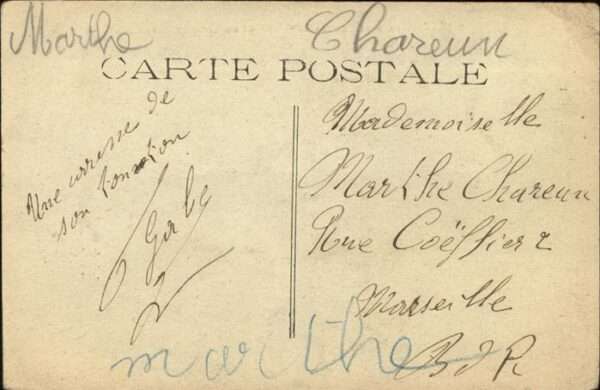 Marthe Chareun
CARTE POSTALE
Une
de
son
Mademoiselle
Marthe Chareun
Rue Coëffier 2
Marseille
B d R
marthe